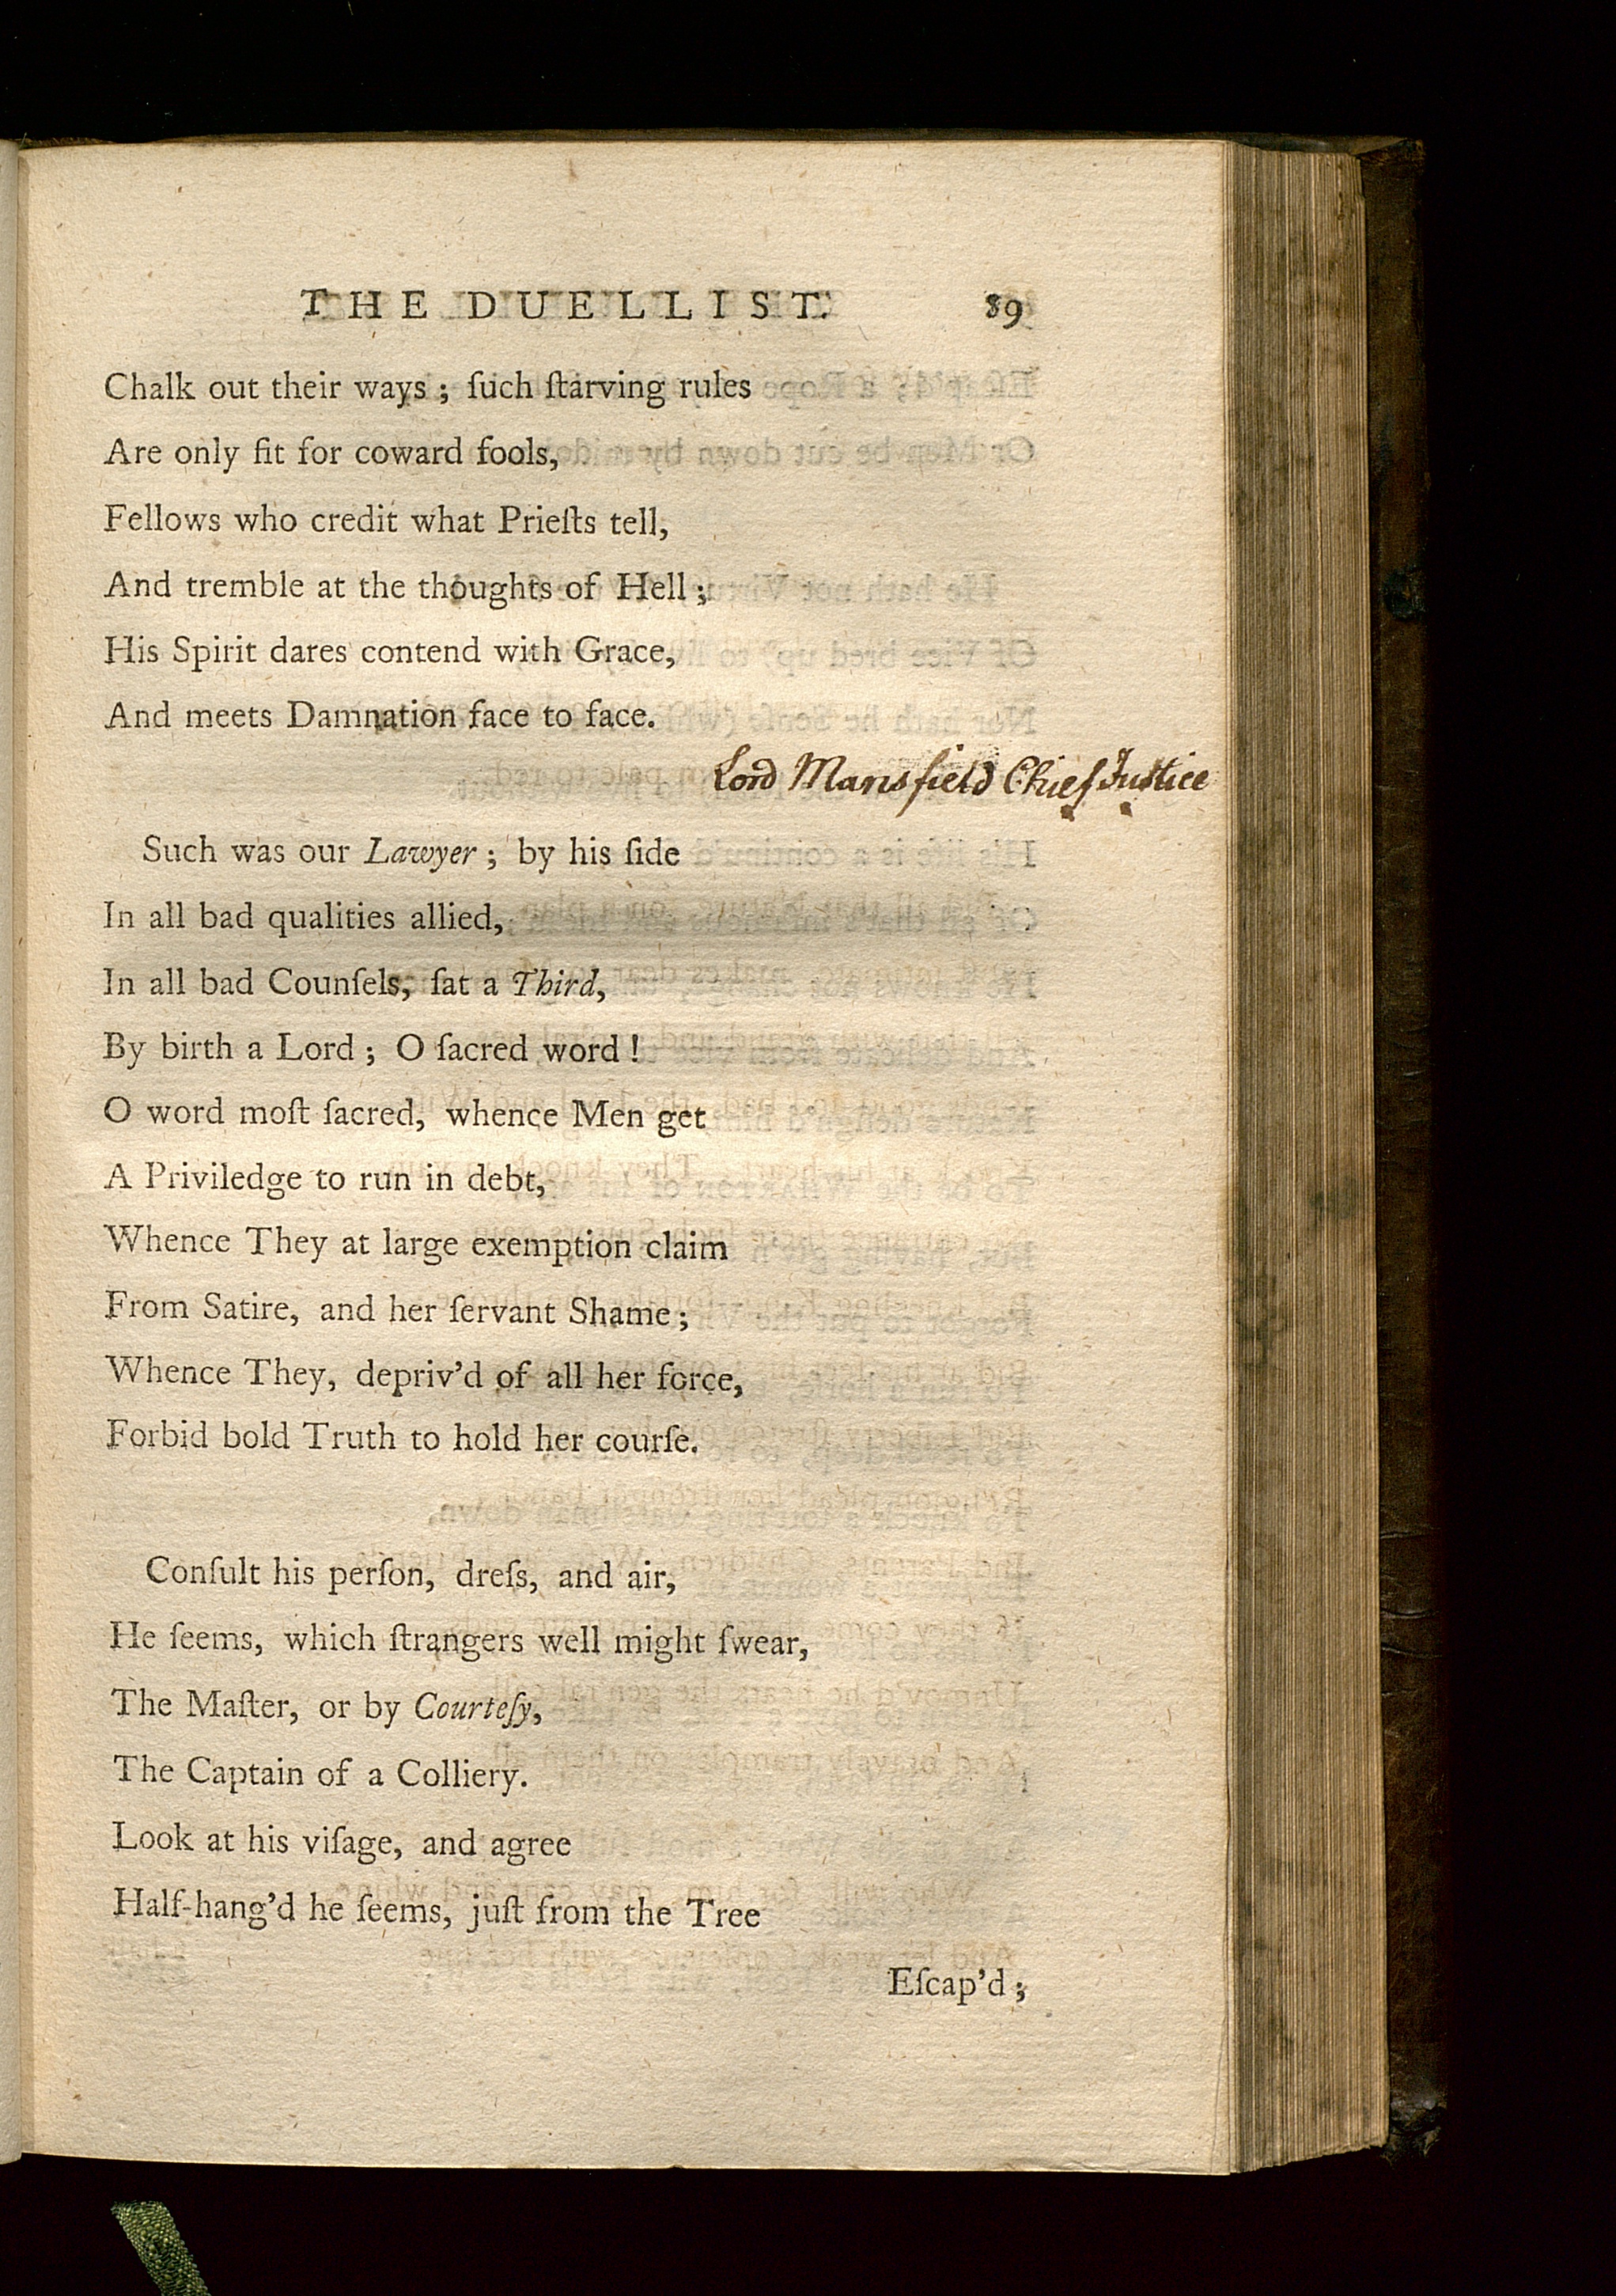 THE DUELLIST. 89
Chalk out their ways ; ſuch ſtarving rules
Are only fit for coward fools,
Fellows who credit what Prieſts tell,
And tremble at the thoughts of Hell ;
His Spirit dares contend with Grace,
And meets Damnation face to face.
Lord Mansfield Chief Justice
Such was our Lawyer ; by his ſide
In all bad qualities allied,
In all bad Counſels, ſat a Third,
By birth a Lord ; O ſacred word !
O word moſt ſacred, whence Men get
A Priviledge to run in debt,
Whence They at large exemption claim
From Satire, and her ſervant Shame ;
Whence They, depriv'd of all her force,
Forbid bold Truth to hold her courſe.
Conſult his perſon, dreſs, and air,
He ſeems, which ſtrangers well might ſwear,
The Maſter, or by Courteſy,
The Captain of a Colliery.
Look at his viſage, and agree
Half-hang'd he ſeems, juſt from the Tree
Eſcap'd ;